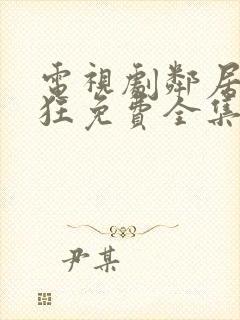 電視劇鄰居
狂免費全集
尹某